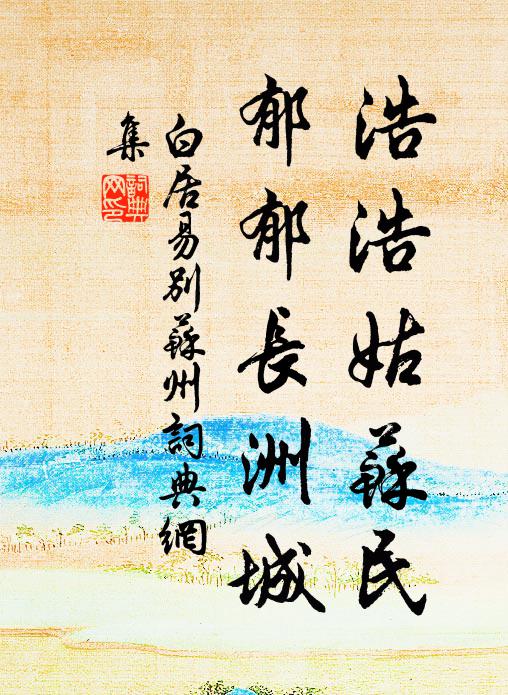 浩浩姑蘇民
郁郁長洲城
白居易別蘇州詞典網
集
詞典
网印